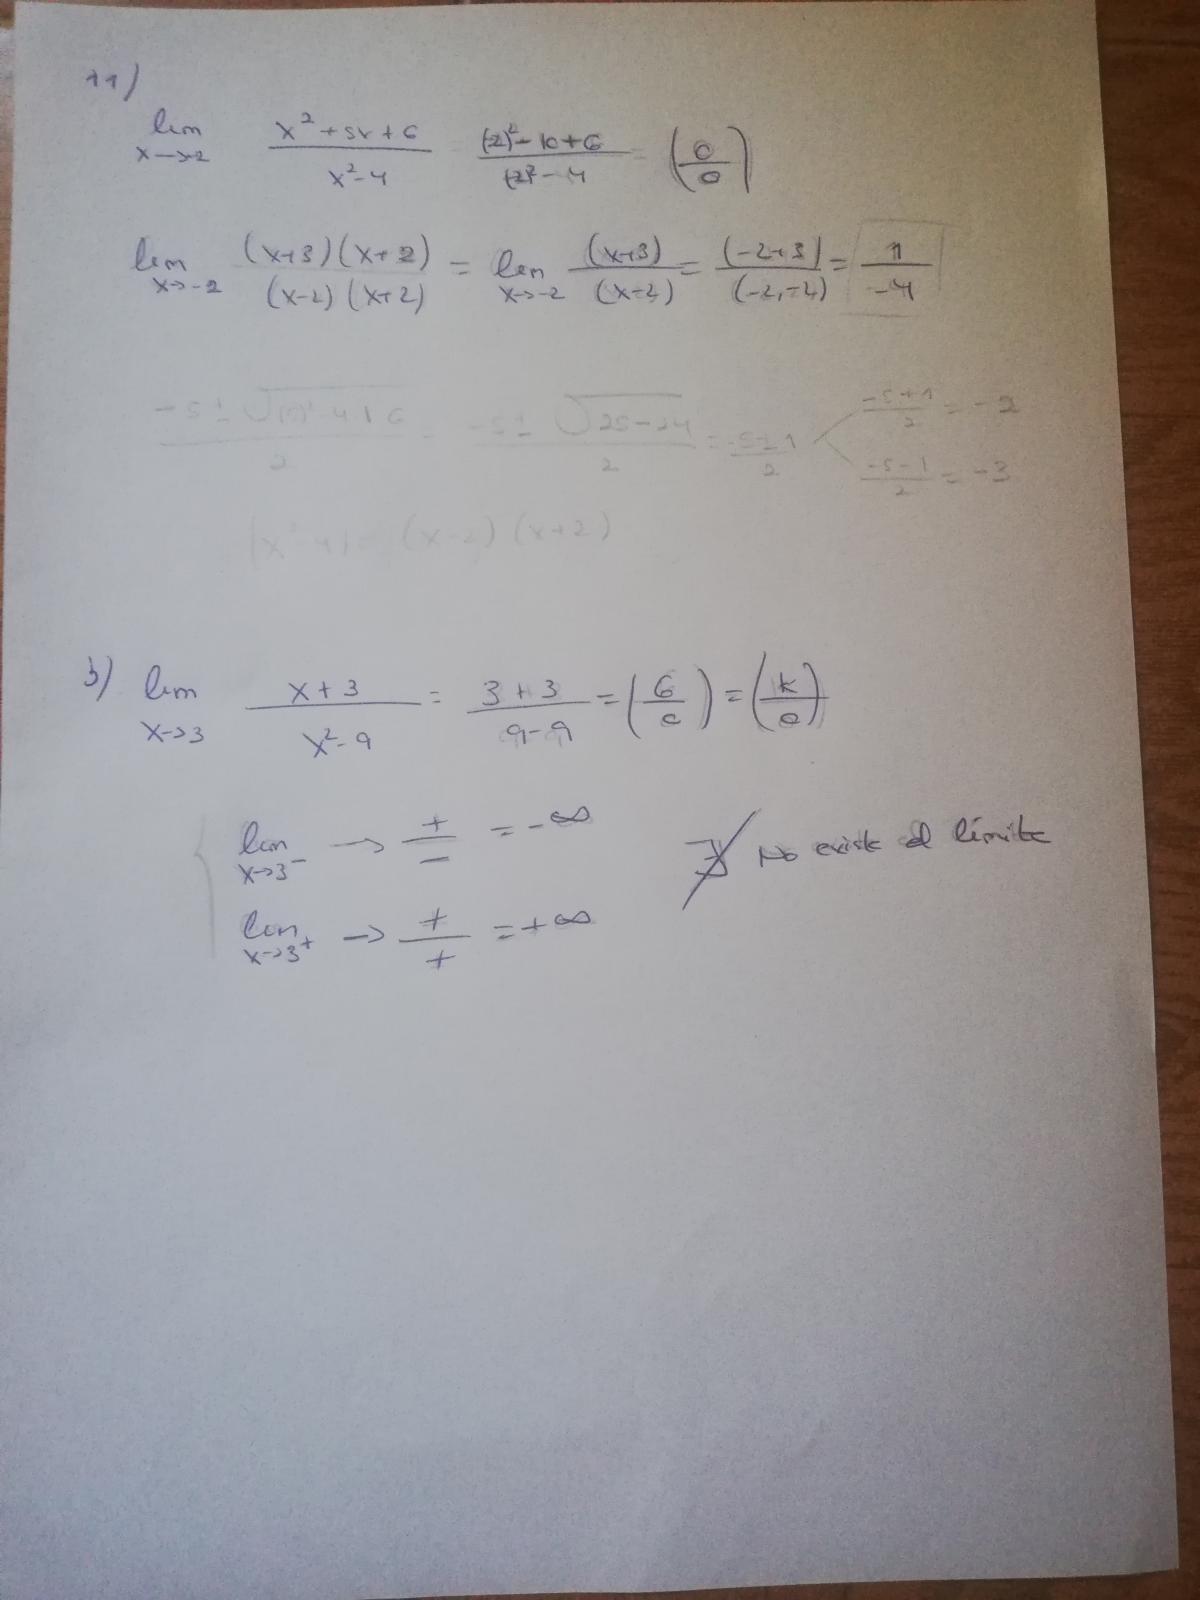 11)
lim x→-2 (x²+5x+6)/(x²-4) ((-2)²-10+6)/((-2)²-4) = (0/0)
lim x→-2 ((x+3)(x+2))/((x-2)(x+2)) = lim x→-2 (x+3)/(x-2) = (-2+3)/(-2-2) = 1/-4
(-5±√((5)²-4·1·6))/2 = (-5±√(25-24))/2 = (-5±1)/2
(-5+1)/2 = -2
(-5-1)/2 = -3
(x²-4) = (x-2)(x+2)
b) lim x→3 (x+3)/(x²-9) = (3+3)/(9-9) = (6/0) = (k/0)
lim x→3⁻ → +/- = -∞
∄ No existe el límite
lim x→3⁺ → +/+ = +∞